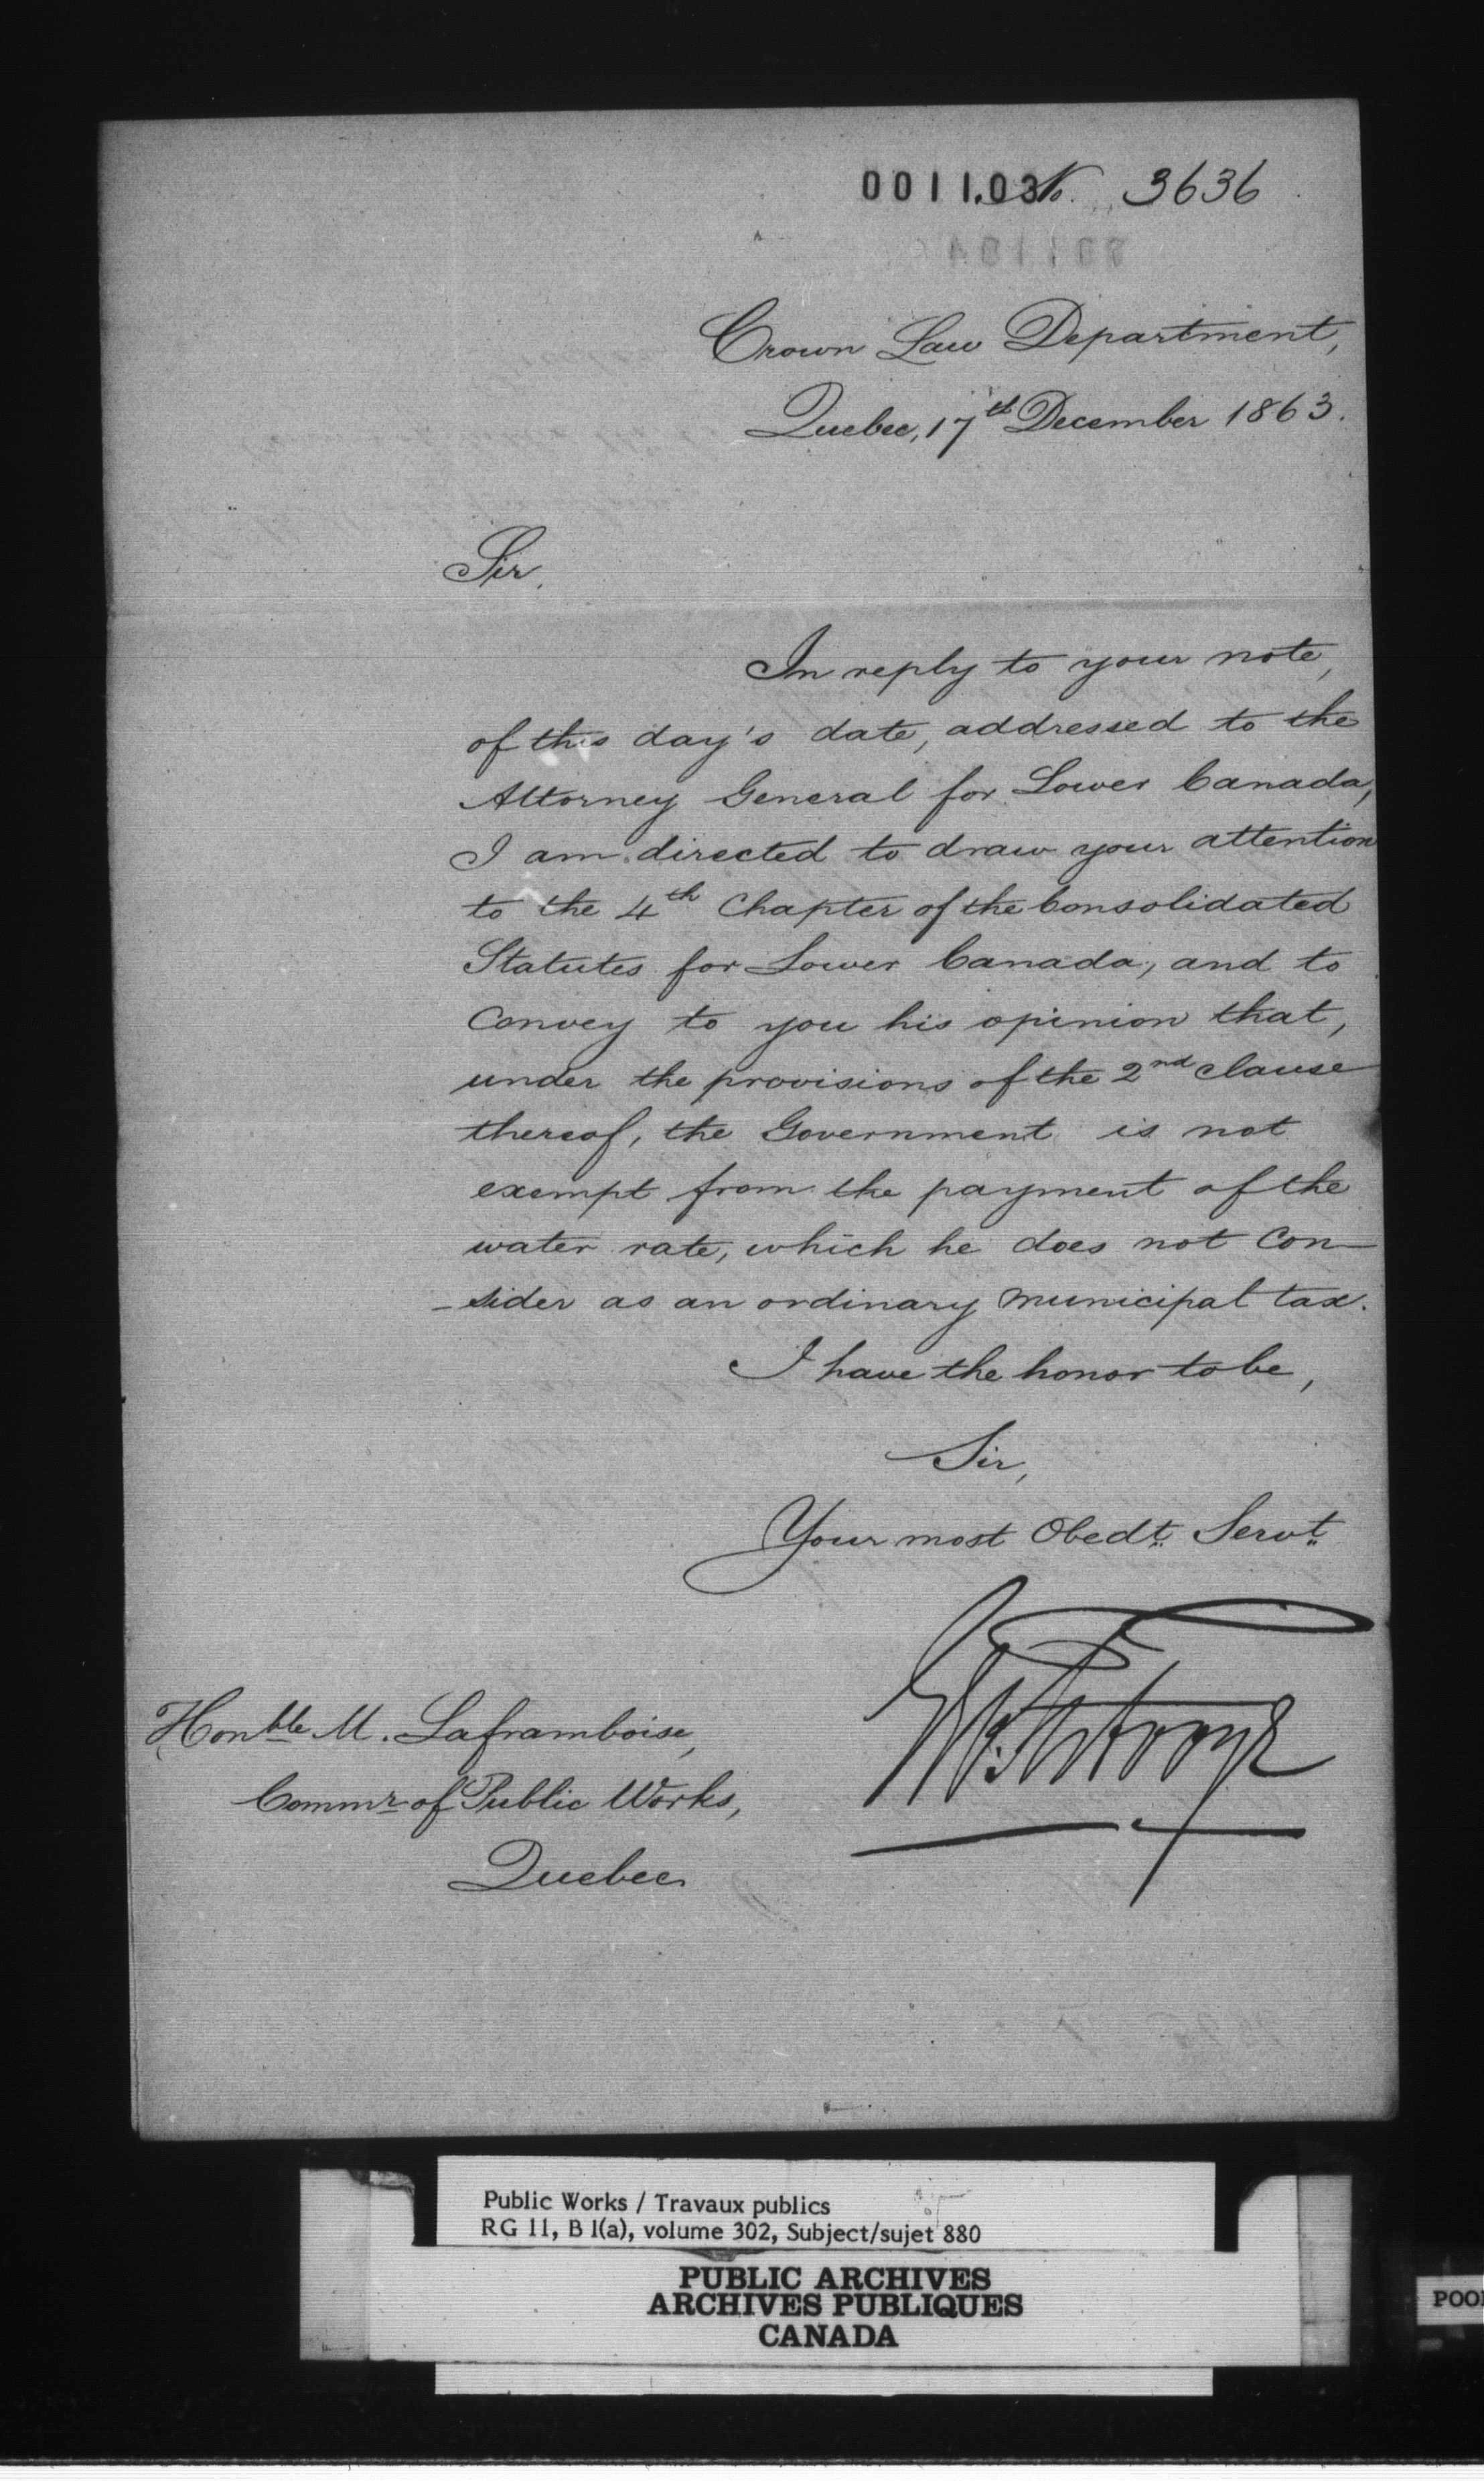 001103 No. 3636
Crown Law Department,
Quebec, 17th December 1863.
Sir,
In reply to your note,
of this day's date, addressed to the
Attorney General for Lower Canada,
I am directed to draw your attention
to the 4th Chapter of the Consolidated
Statutes for Lower Canada, and to
convey to you his opinion that,
under the provisions of the 2nd clause
thereof, the Government is not
exempt from the payment of the
water rate, which he does not con-
-sider as an ordinary municipal tax.
I have the honor to be,
Sir,
Your most Obedt. Servt.
Honble M. Laframboise,
Commr of Public Works,
Quebec
Public Works / Travaux publics
RG 11, B 1(a), volume 302, Subject/sujet 880
PUBLIC ARCHIVES
ARCHIVES PUBLIQUES
CANADA